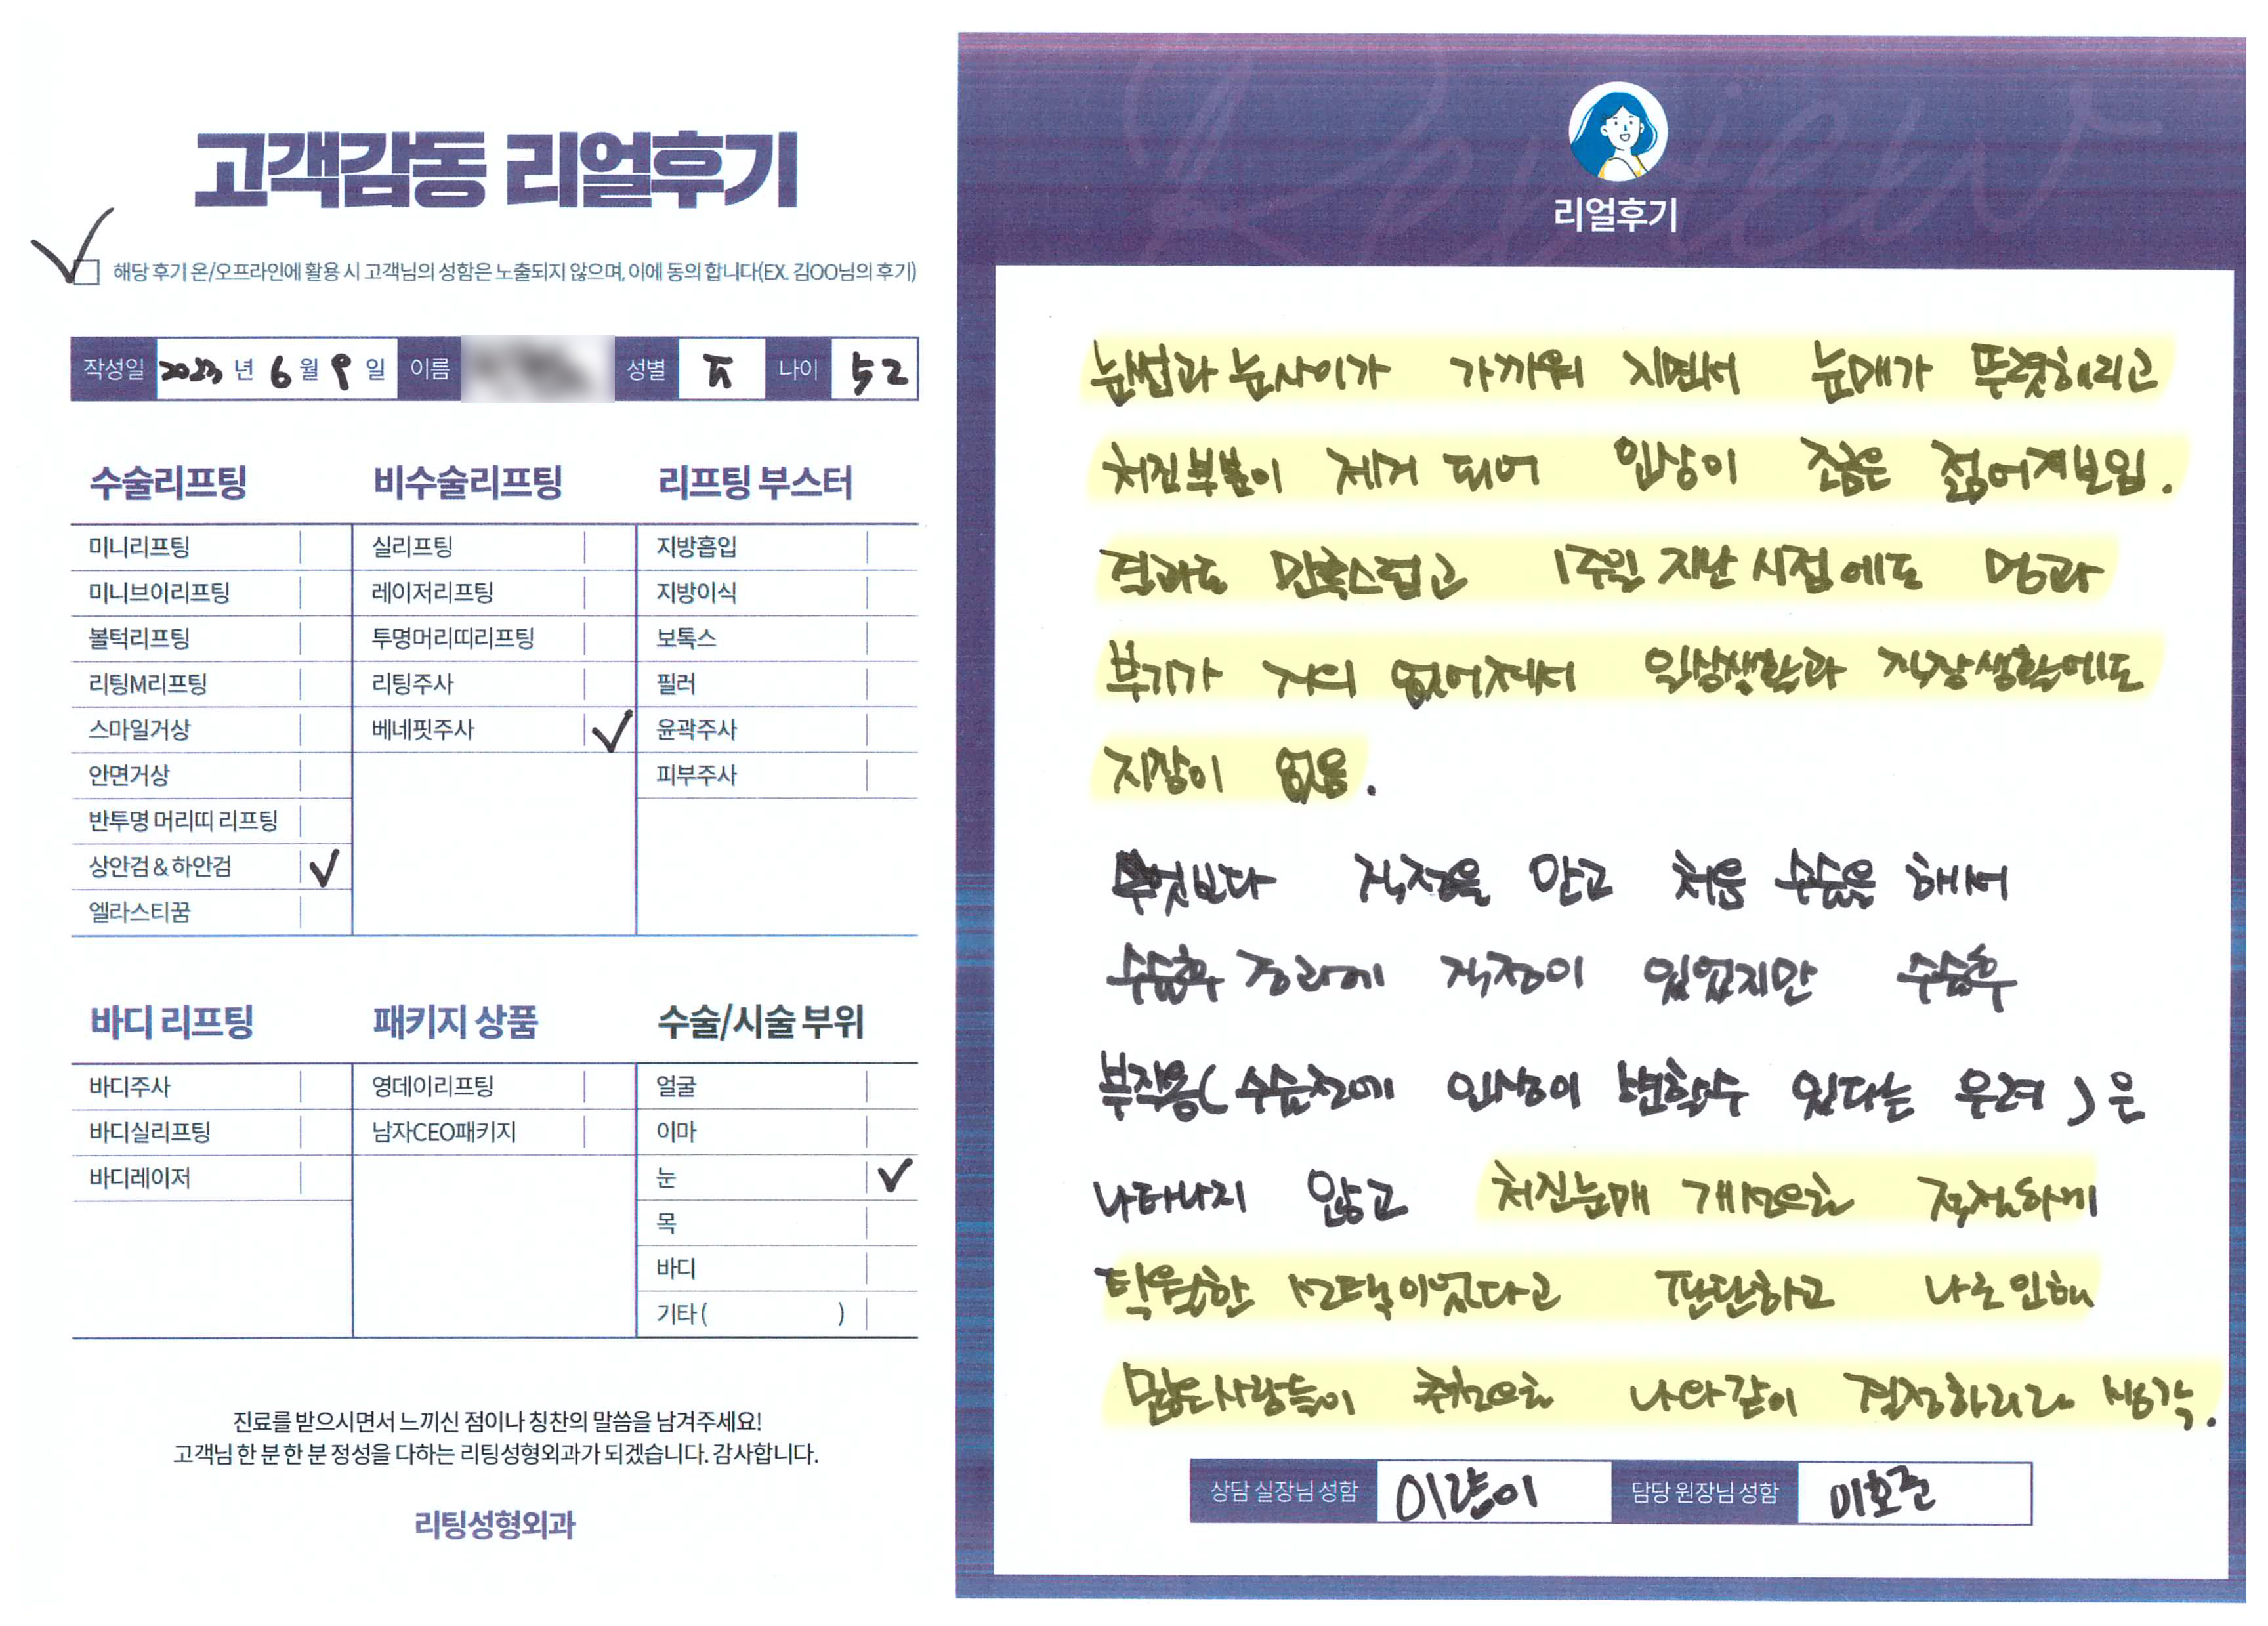 고객감동 리얼후기
해당 후기 온/오프라인에 활용 시 고객님의 성함은 노출되지 않으며, 이에 동의 합니다(EX. 김OO님의 후기)
작성일 2023 년 6 월 9 일 이름 성별 나이 52
수술리프팅
미니리프팅
미니브이리프팅
볼턱리프팅
리팅M리프팅
스마일거상
안면거상
반투명 머리띠 리프팅
상안검 & 하안검
엘라스티꿈
비수술리프팅
실리프팅
레이저리프팅
투명머리띠리프팅
리팅주사
베네핏주사
리프팅 부스터
지방흡입
지방이식
보톡스
필러
윤곽주사
피부주사
바디 리프팅
바디주사
바디실리프팅
바디레이저
패키지 상품
영데이리프팅
남자CEO패키지
수술/시술 부위
얼굴
이마
눈
목
바디
기타 ( )
진료를 받으시면서 느끼신 점이나 칭찬의 말씀을 남겨주세요!
고객님 한 분 한 분 정성을 다하는 리팅성형외과가 되겠습니다. 감사합니다.
리팅성형외과
Review
리얼후기
눈썹과 눈사이가 가까워 지면서 눈매가 뚜렷해지고
처진부분이 제거 되어 인상이 조금은 젊어져보임.
결과도 만족스럽고 1주일 지난 시점에도 멍과
부기가 거의 없어져서 일상생활과 직장생활에도
지장이 없음.
무엇보다 걱정을 안고 처음 수술을 해서
수술후 경과에 걱정이 있었지만 수술후
부작용( 수술전에 인상이 변할수 있다는 우려 )은
나타나지 않고 처진눈매 개선으로 적절하게
탁월한 선택이었다고 판단하고 나로 인해
많은사람들이 추천으로 나와같이 결정하리라 생각.
상담 실장님 성함 담당 원장님 성함 이호준